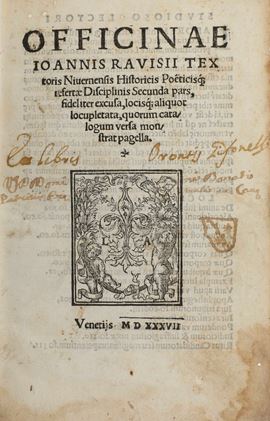 OFFICINAE
IOANNIS RAVISII TEX
toris Niuernensis Historicis Poëticisq́;
refertæ Disciplinis Secunda pars,
fideliter excusa, locisq́; aliquot
locupletata, quorum cata-
logum versa mon-
strat pagella.
*
Ex libris
L A
Venetijs M D XXXVII